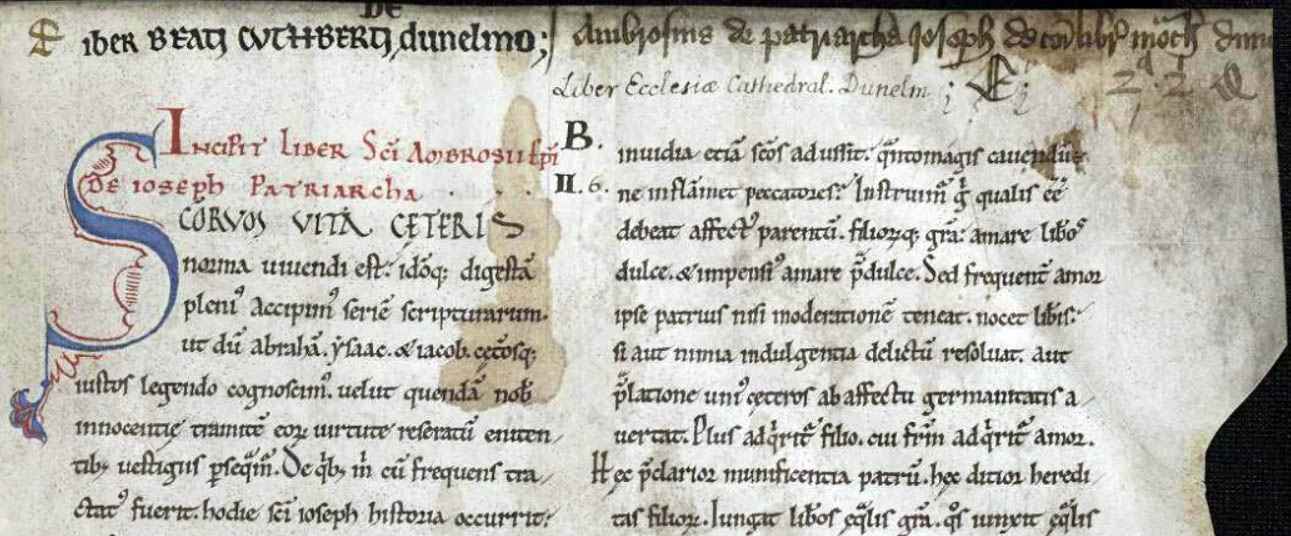 DE
Liber BEATI CUTHBERTI dunelmo;
Ambrosius de patriarcha Joseph
Liber Ecclesiæ Cathedral. Dunelm ; E;
2ᵃ. 2. Q
INCIPIT LIBER SCĪ AMBROSII EP̄I
DE IOSEPH PATRIARCHA
SCORVM VITA CĘTERIS
norma uiuendi est. idōq; digestā
pleniꝰ accipimꝰ seriē scripturarum.
ut dū abrahā. ẏsaac. & iacob. cęt̄osq;
iustos legendo cognoscimꝰ. uelut quendā nob̄
innocentię tramitē eoꝝ uirtute reseratū eniten
tib; uestigiis ꝑseq̄m̄. De q̄b; m̄ cū frequens tra
ctatꝰ fuerit. hodie sc̄i ioseph historia occurrit.
B.
II. 6.
inuidia etiā sc̄os adussit. q̄ntomagis cauendū
ne inflāmet peccatores. Instruim̄ ḡ qualis eē
debeat affectꝰ parentū. filioꝝq; gr̄a. amare lib̄os
dulce. & impensiꝰ amare p̄dulce. Sed frequent̄ amor
ipse patrius nisi moderationē teneat. nocet lib̄is.
si aut nimia indulgentia delictū resoluat. aut
p̄latione uniꝰ cęteros ab affectu germanitatis a
uertat. Plus adq̄rit̄ filio. cui fr̄m adq̄rit̄ amor.
Hęc p̄clarior munificentia patrū. hęc ditior heredi
tas filioꝝ. Iungat lib̄os ęq̄lis gr̄a. q̄s iunxit ęq̄lis